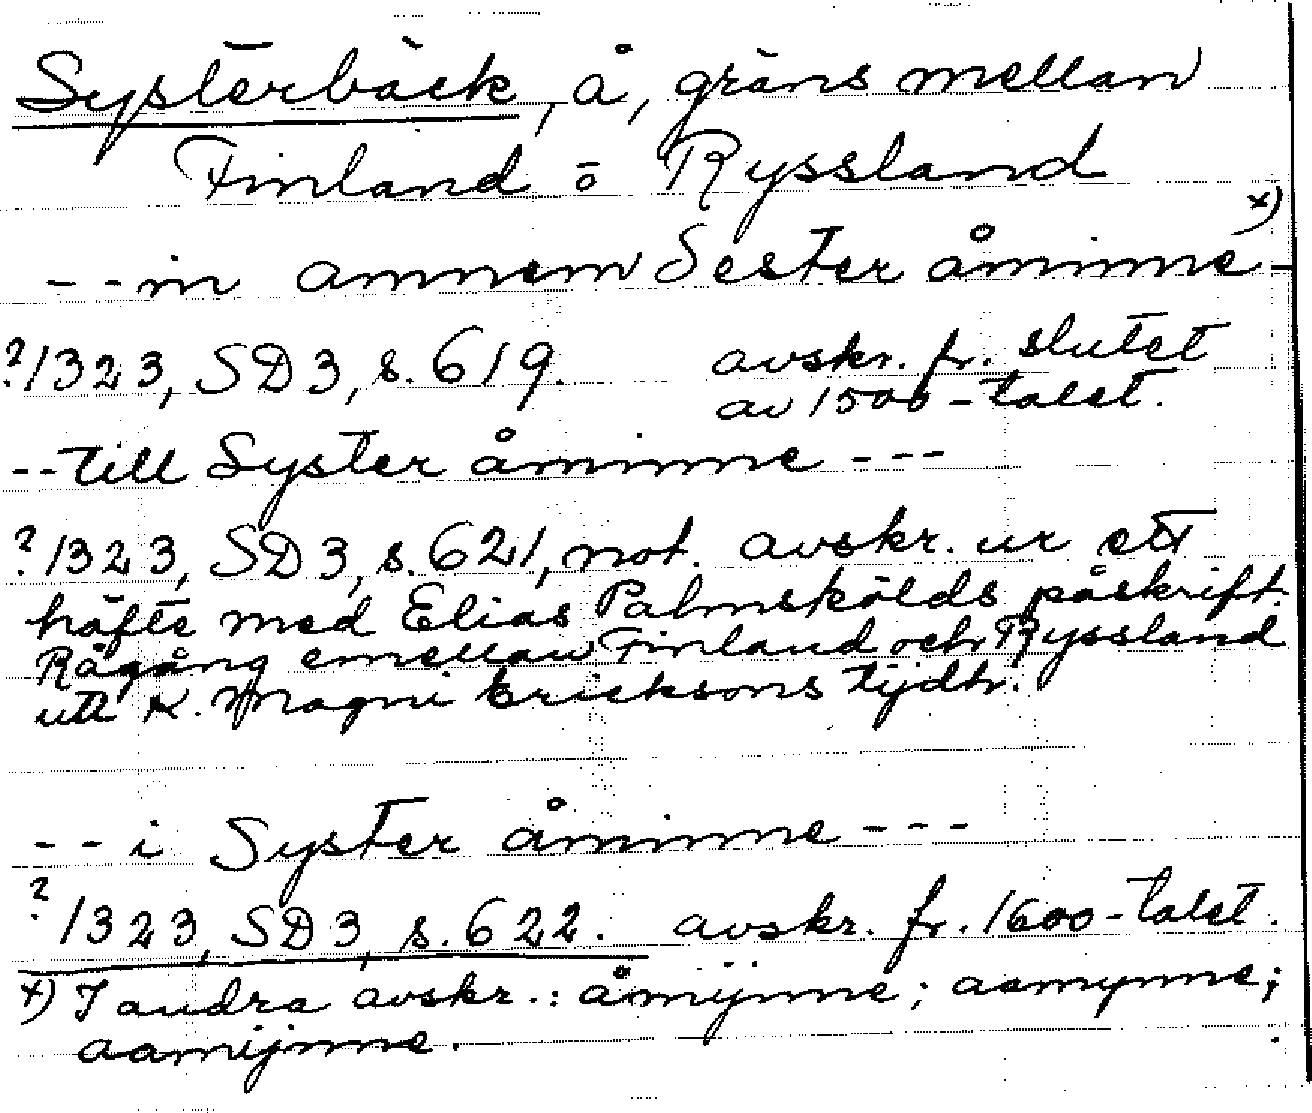 Systerbäck, å, gräns mellan
Finland o Ryssland
- - in amnem Sester åminne x) -
?1323, SD3, s. 619. avskr. fr. slutet
av 1500-talet.
- - till Syster åminne - - -
?1323, SD3, s. 621, not. avskr. ur ett
häfte med Elias Palmskölds påskrift.
Rågång emellan Finland och Ryssland
utt K. Magni Ericksons tijdh.
- - i Syster åminne - - -
?1323, SD3, s. 622. avskr. fr. 1600-talet.
x) I andra avskr.: åmÿnne; aamynne;
aamijnne.